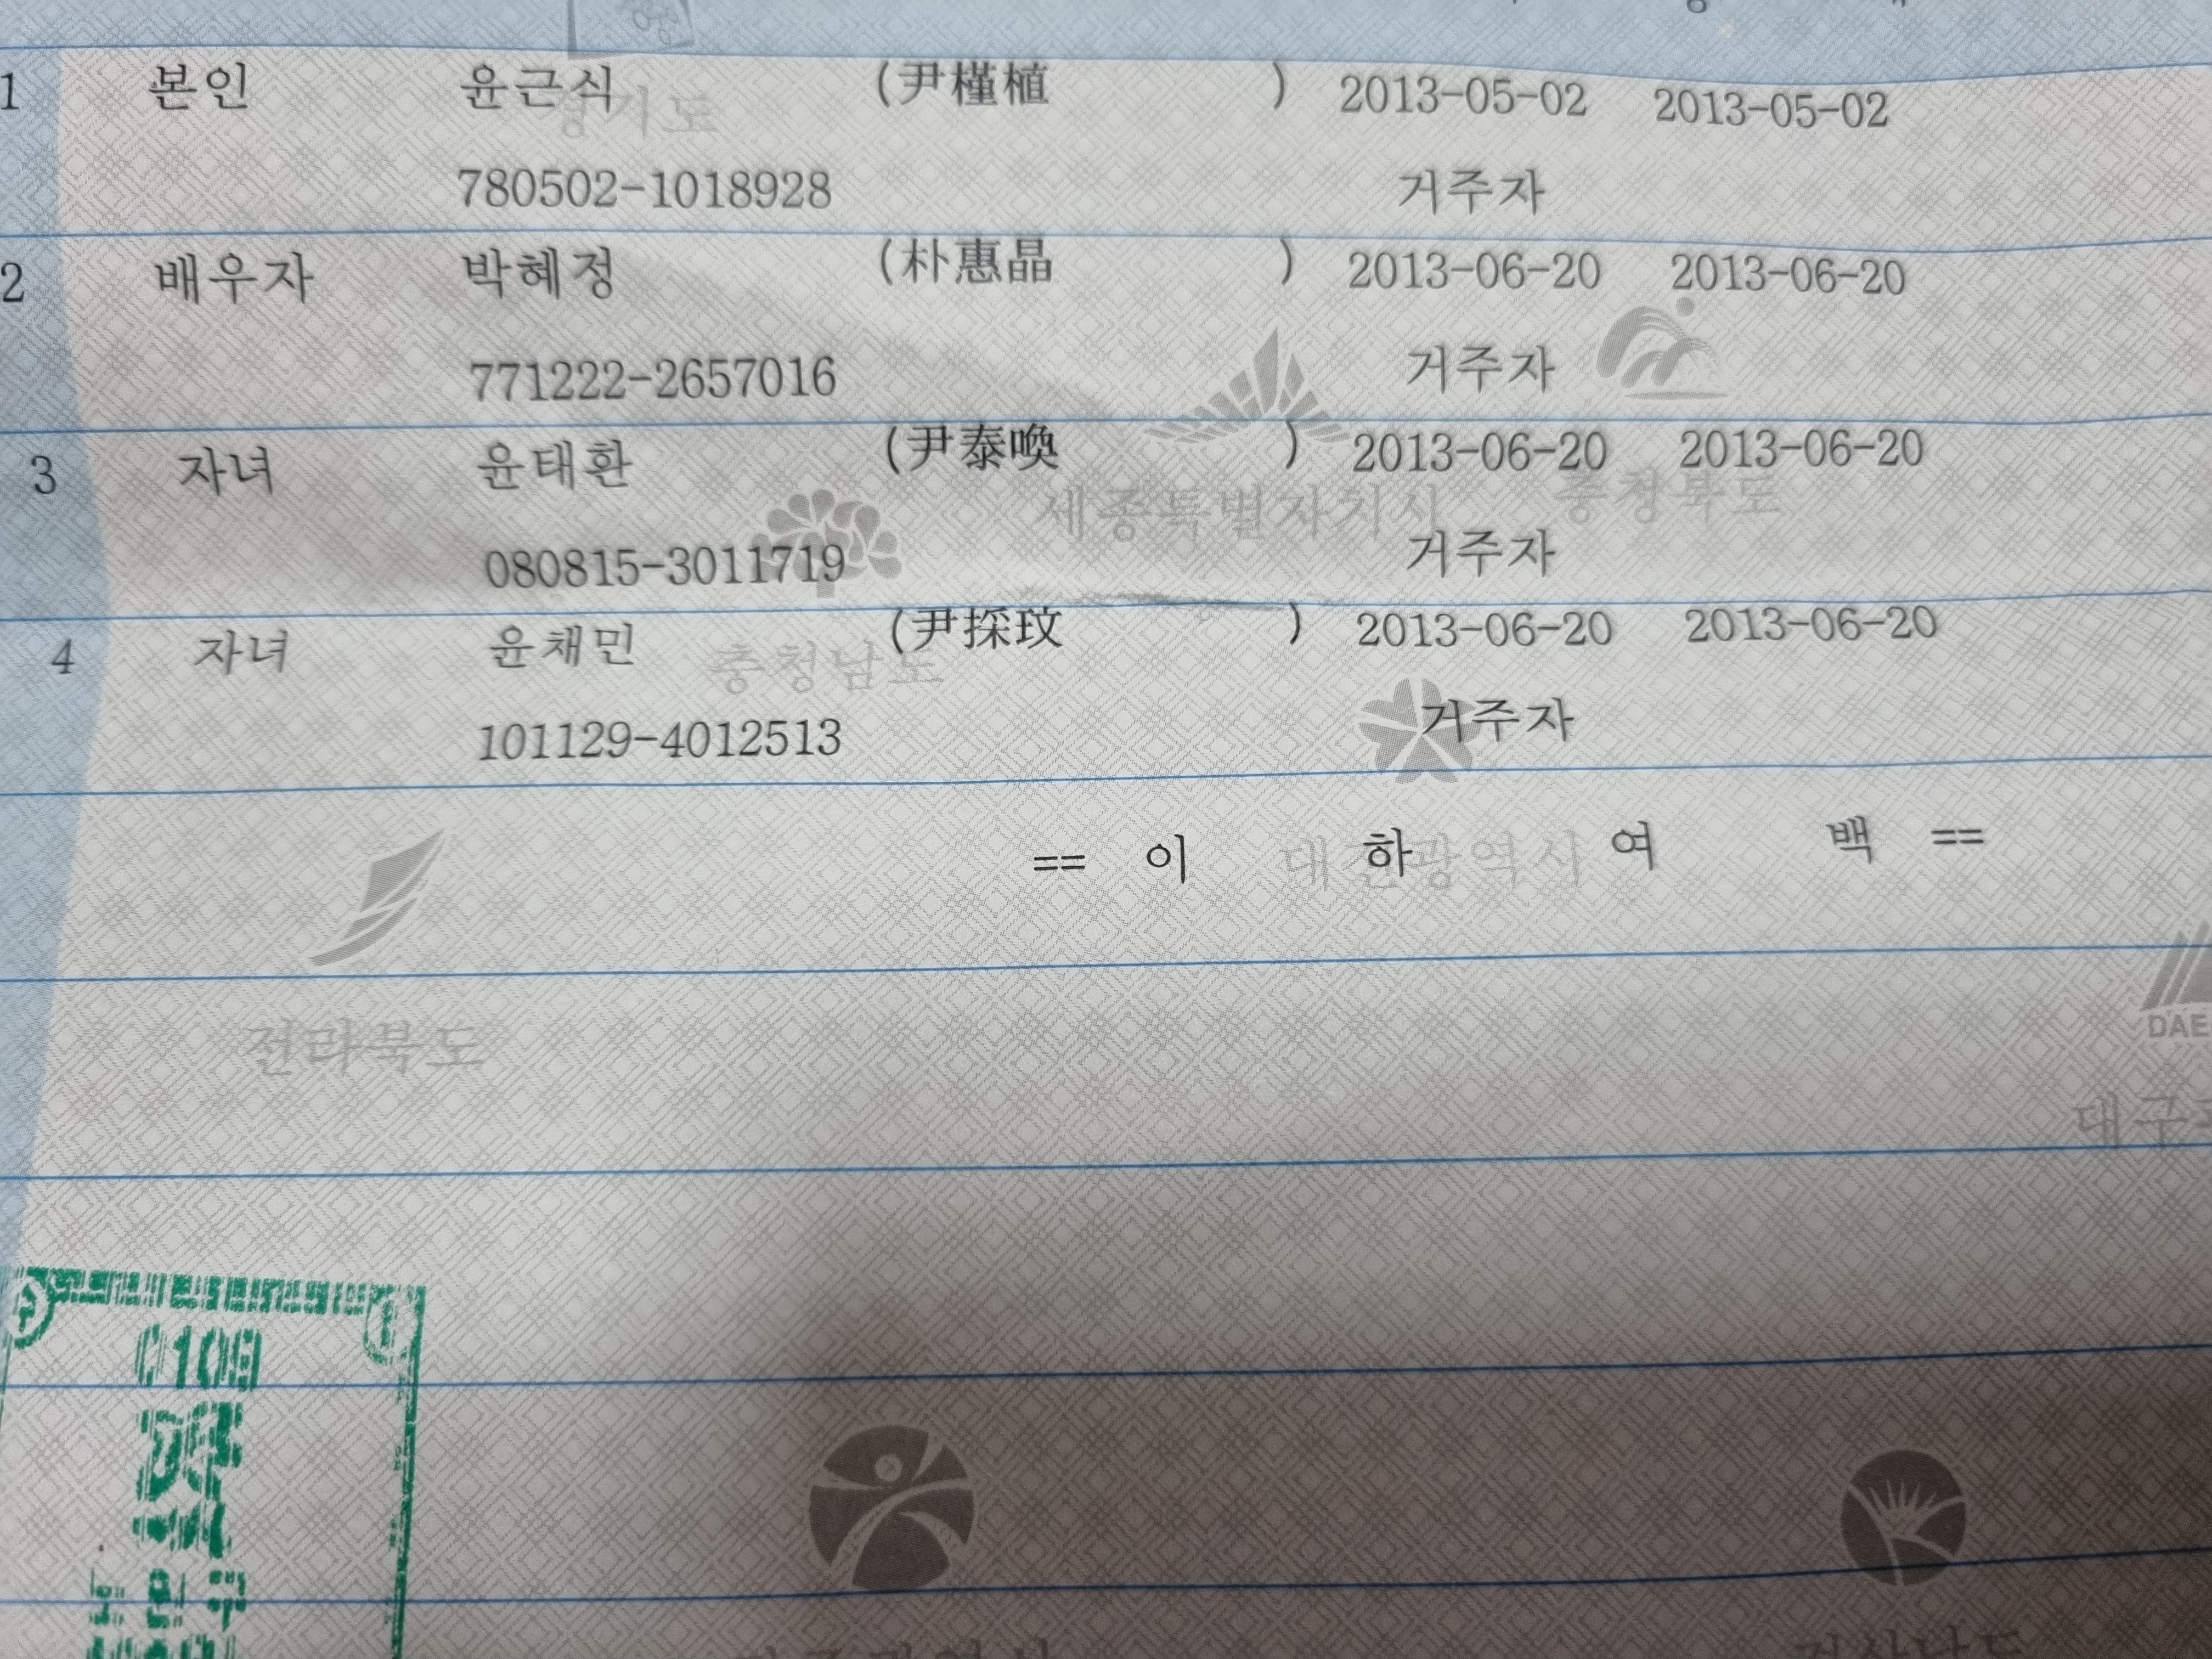 1 본인 윤근식 (尹槿植 ) 2013-05-02 2013-05-02
경기도
780502-1018928 거주자
2 배우자 박혜정 (朴惠晶 ) 2013-06-20 2013-06-20
771222-2657016 거주자
3 자녀 윤태환 (尹泰喚 ) 2013-06-20 2013-06-20
세종특별자치시 충청북도
080815-3011719 거주자
4 자녀 윤채민 (尹採玟 ) 2013-06-20 2013-06-20
충청남도
101129-4012513 거주자
== 이 하 여 백 ==
대전광역시
전라북도